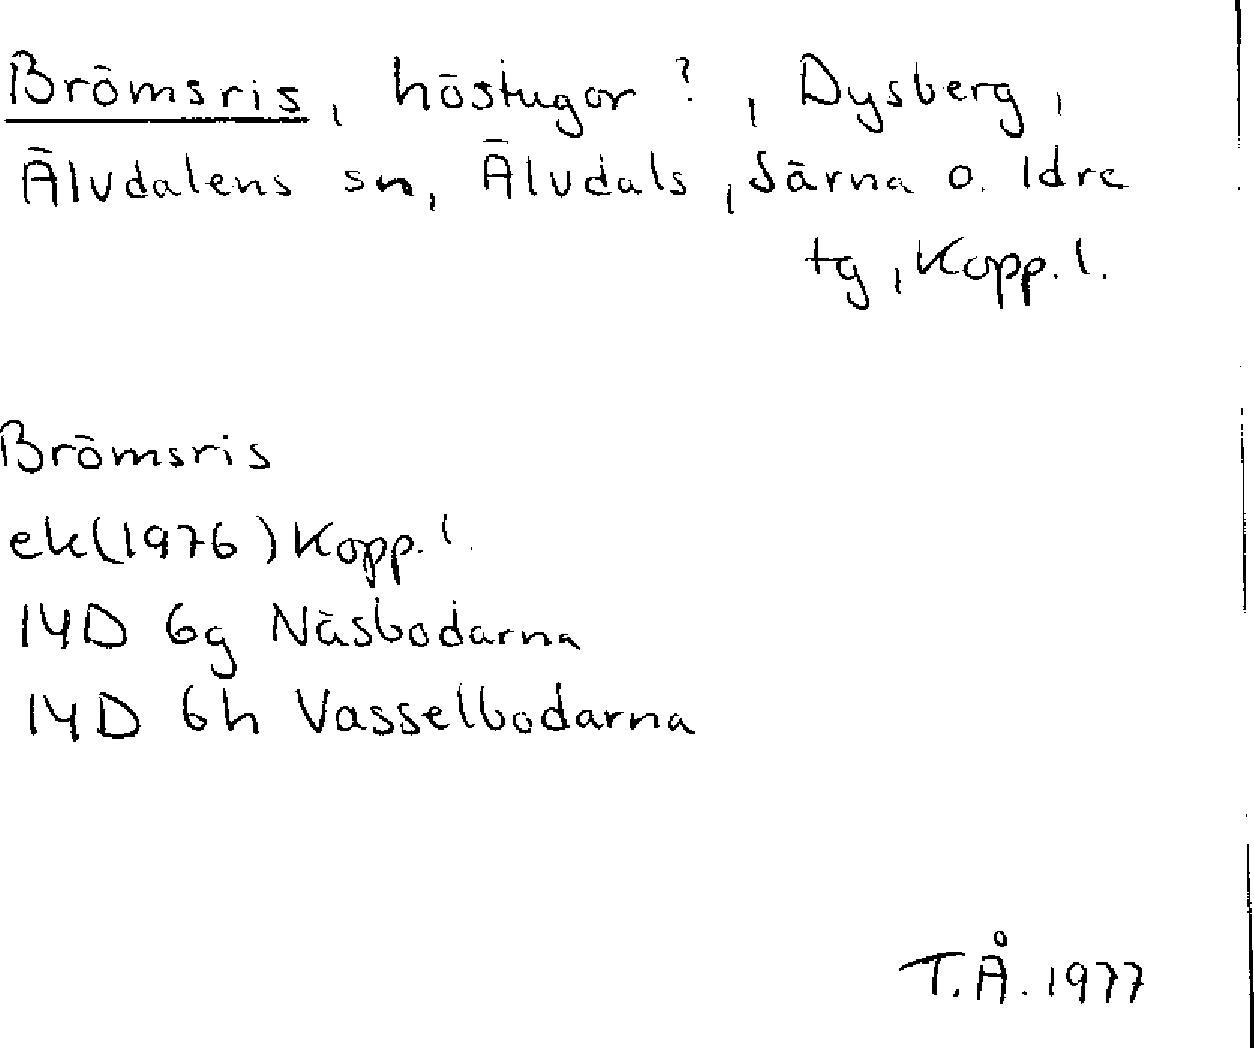 Brömsris, höstugor ?, Dysberg,
Älvdalens sn, Älvdals, Särna o. Idre
tg, Kopp. l.
Brömsris
ek(1976) Kopp. l.
14D 6g Näsbodarna
14D 6h Vasselbodarna
T.Å. 1977